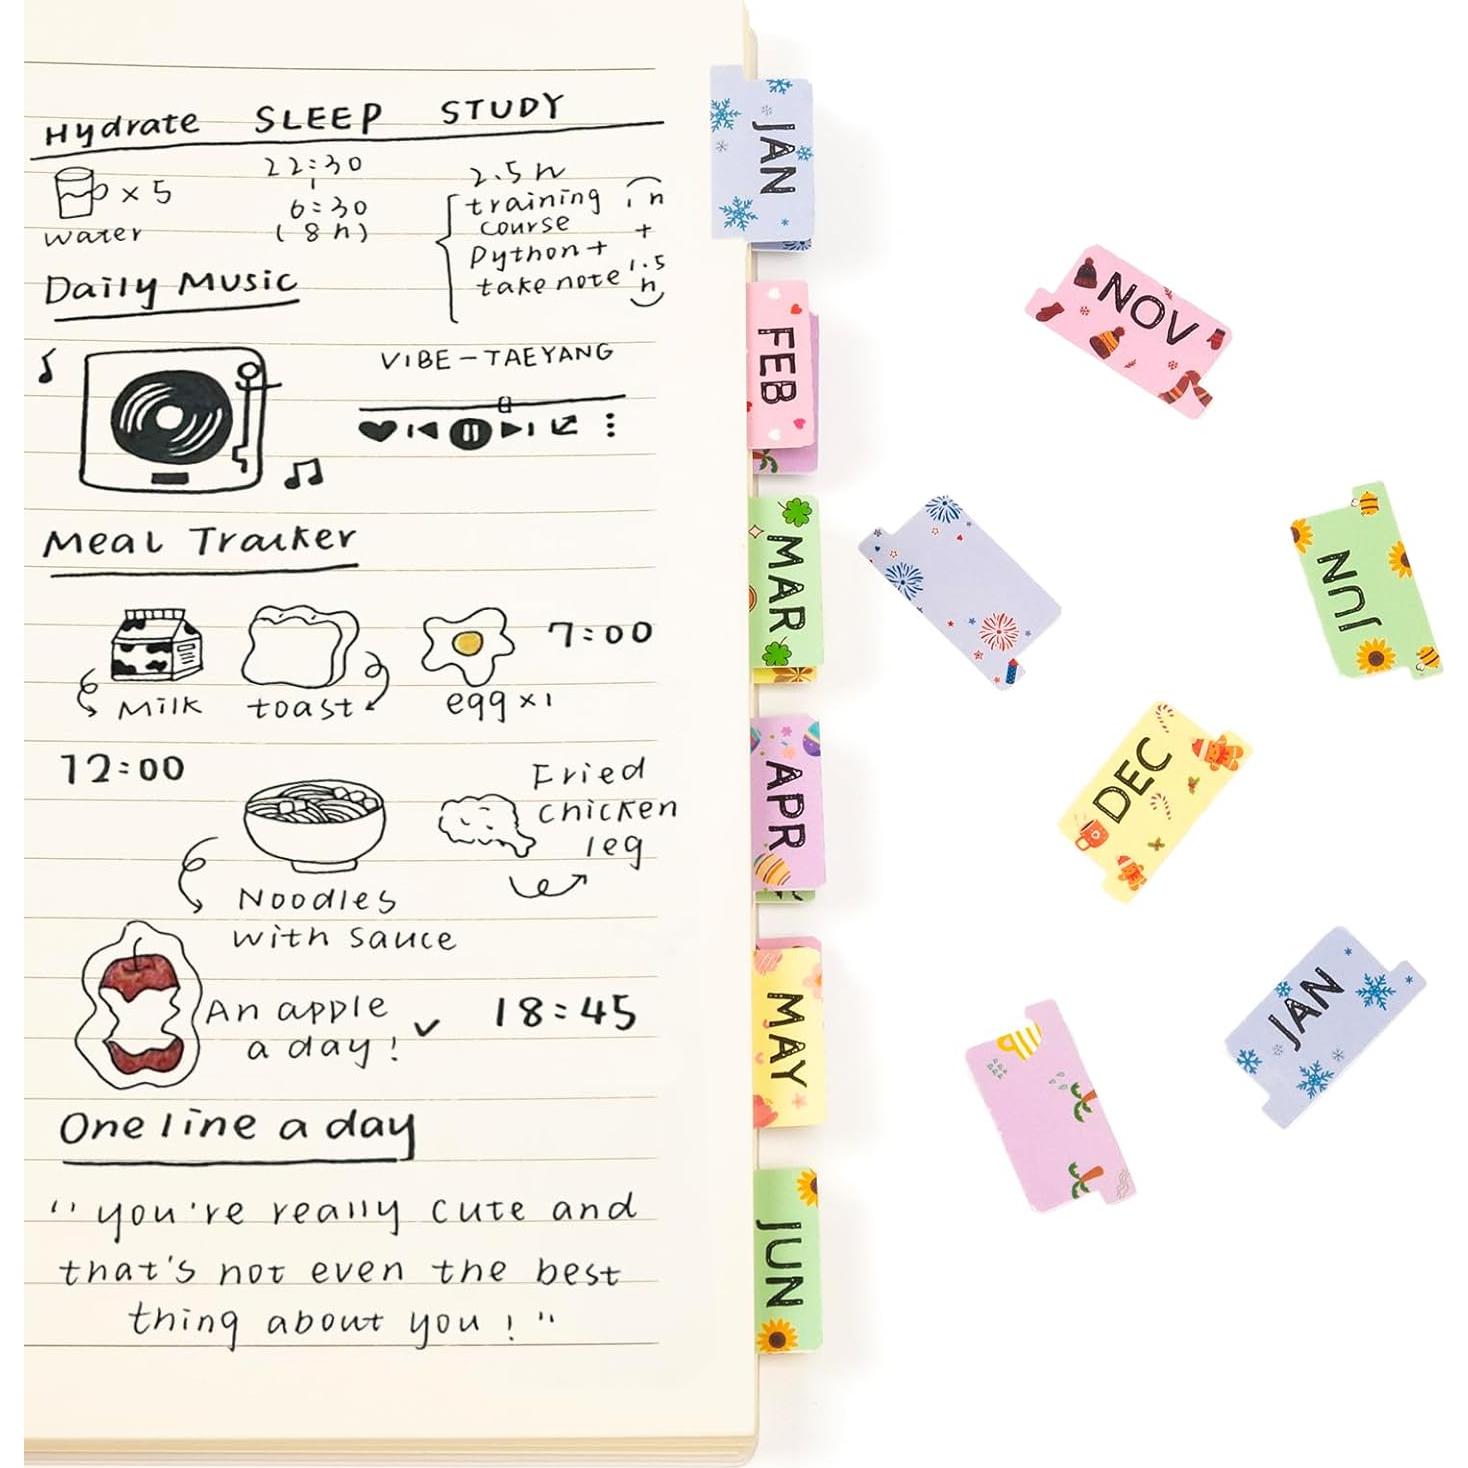 Hydrate SLEEP STUDY
x 5
water
22:30
6:30
(8h)
2.5h
training 1h
course +
Python+
take note 1.5h
Daily Music
VIBE - TAEYANG
Meal Tracker
Milk
toast
egg x1
7:00
12:00
Noodles
with sauce
Fried
chicken
leg
An apple
a day!
18:45
One line a day
"you're really cute and
that's not even the best
thing about you!"
JAN
FEB
MAR
APR
MAY
JUN
NOV
JUN
DEC
JAN